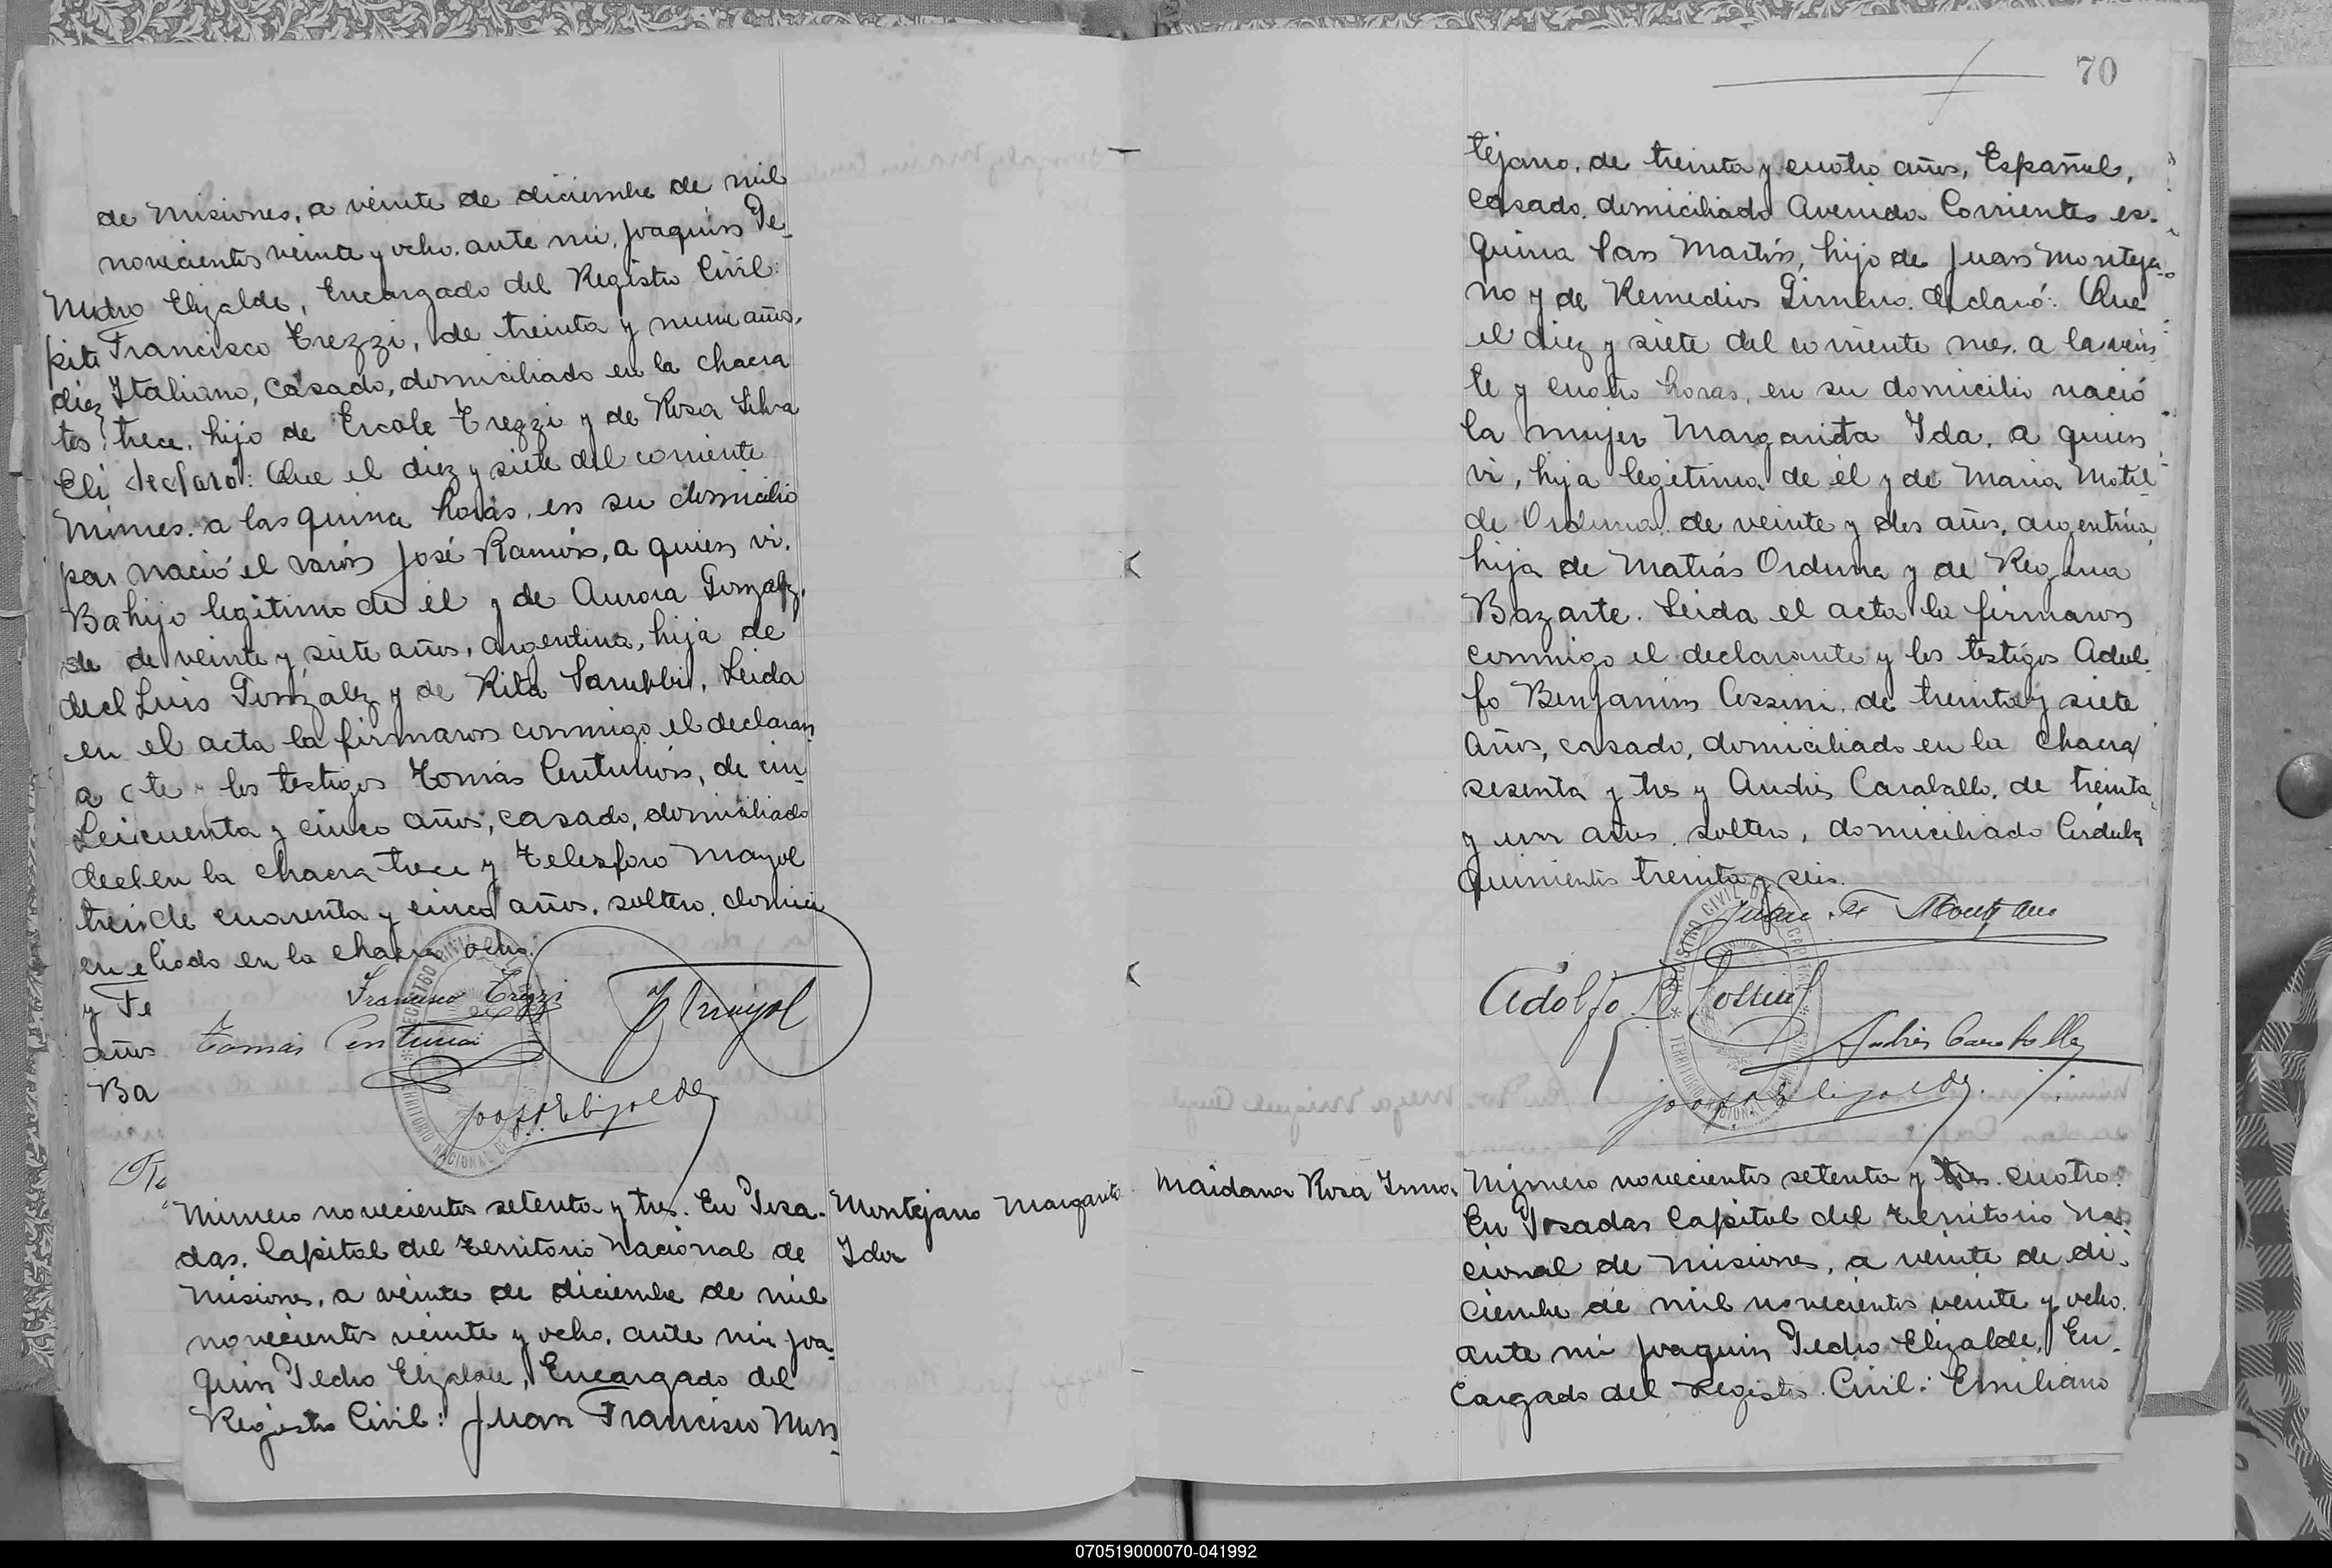 de Misiones, a veinte de diciembre de mil
novecientos veinte y ocho. ante mi, Joaquin Pe-
dro Elizalde, Encargado del Registro Civil:
Francisco Trezzi, de treinta y nueve años,
Italiano, casado, domiciliado en la chacra
trece, hijo de Ercole Trezzi y de Rosa Silva
declaró: Que el diez y siete del corriente
mes. a las quince horas, en su domicilio
nació el varón José Ramón, a quien vi.
hijo legitimo de él y de Aurora Gonzalez,
de veinte y siete años, argentina, hija de
Luis Gonzalez y de Rita Sarubbi. Leida
el acta la firmaron conmigo el declaran
te y los testigos Tomás Centurión, de cin-
cuenta y cinco años, casado, domiciliado
en la chacra trece y Telesforo Mayol
de cuarenta y cinco años. soltero. domici
liado en la chacra ocho.
Francisco Trezzi
T Mayol
Tomas Centurion
Joaq. P. Elizalde
Número novecientos setenta y tres. En Posa-
das. Capital del Territorio Nacional de
Misiones, a veinte de diciembre de mil
novecientos veinte y ocho. ante mi Joa-
quin Pedro Elizalde, Encargado del
Registro Civil: Juan Francisco Mon-
Montejano Margarita
Ida
70
tejano, de treinta y cuatro años, Español,
casado, domiciliado Avenida Corrientes es-
quina San Martin, hijo de Juan Monteja-
no y de Remedios Gimeno. declaró: Que
el diez y siete del corriente mes. a la vein
te y cuatro horas, en su domicilio nació
la mujer Margarita Ida, a quien
vi, hija legitima de él y de Maria Matil-
de Orduna, de veinte y dos años, argentina,
hija de Matias Orduna y de Regina
Bazarte. Leida el acta la firmaron
conmigo el declarante y los testigos Adol-
fo Benjamin Cossini, de treinta y siete
años, casado, domiciliado en la chacra
sesenta y tres y Andrés Caraballo, de treinta
y un años, soltero, domiciliado Cordoba
quinientos treinta y seis.
Juan F Montejano
Adolfo B Cossini
Andrés Caraballo
Joaq. P. Elizalde
REGISTRO CIVIL DE LA CAPITAL
TERRITORIO NACIONAL DE MISIONES
Maidana Rosa Irma
Número novecientos setenta y tres. cuatro.
En Posadas Capital del Territorio Na-
cional de Misiones, a veinte de di-
ciembre de mil novecientos veinte y ocho.
ante mi Joaquin Pedro Elizalde, En-
cargado del Registro Civil: Emiliano
070519000070-041992